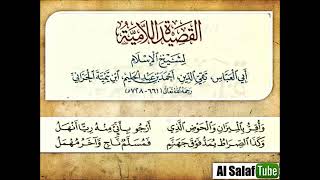 القصيدة اللامية
لشيخ الإسلام
أبي العباس، تقي الدين، أحمد بن عبد الحليم، ابن تيمية الحراني
رحمه الله تعالى (٦٦١-٧٢٨هـ)
وَأُقِرُّ بِالْمِيزَانِ وَالْحَوْضِ الَّذِي أَرْجُو بِأَنِّي مِنْهُ رِيًّا أَنْهَلُ
وَكَذَا الصِّرَاطُ يُمَدُّ فَوْقَ جَهَنَّمٍ فَمُسَلَّمٌ نَاجٍ وَآخَرُ مُهْمَلُ
Al Salaf Tube